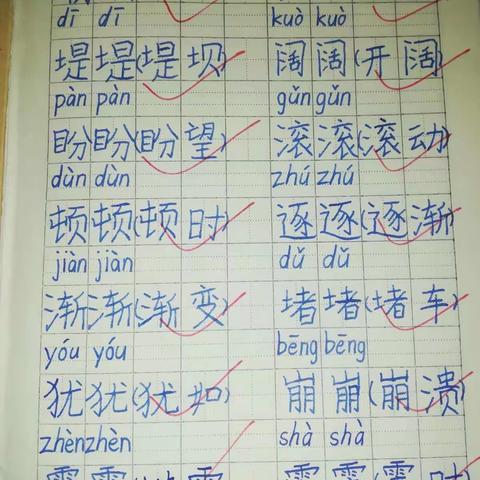 dī dī kuò kuò
堤堤(堤坝) 阔阔(开阔)
pàn pàn gǔn gǔn
盼盼(盼望) 滚滚(滚动)
dùn dùn zhú zhú
顿顿(顿时) 逐逐(逐渐)
jiàn jiàn dǔ dǔ
渐渐(渐变) 堵堵(堵车)
yóu yóu bēng bēng
犹犹(犹如) 崩崩(崩溃)
zhèn zhèn shà shà